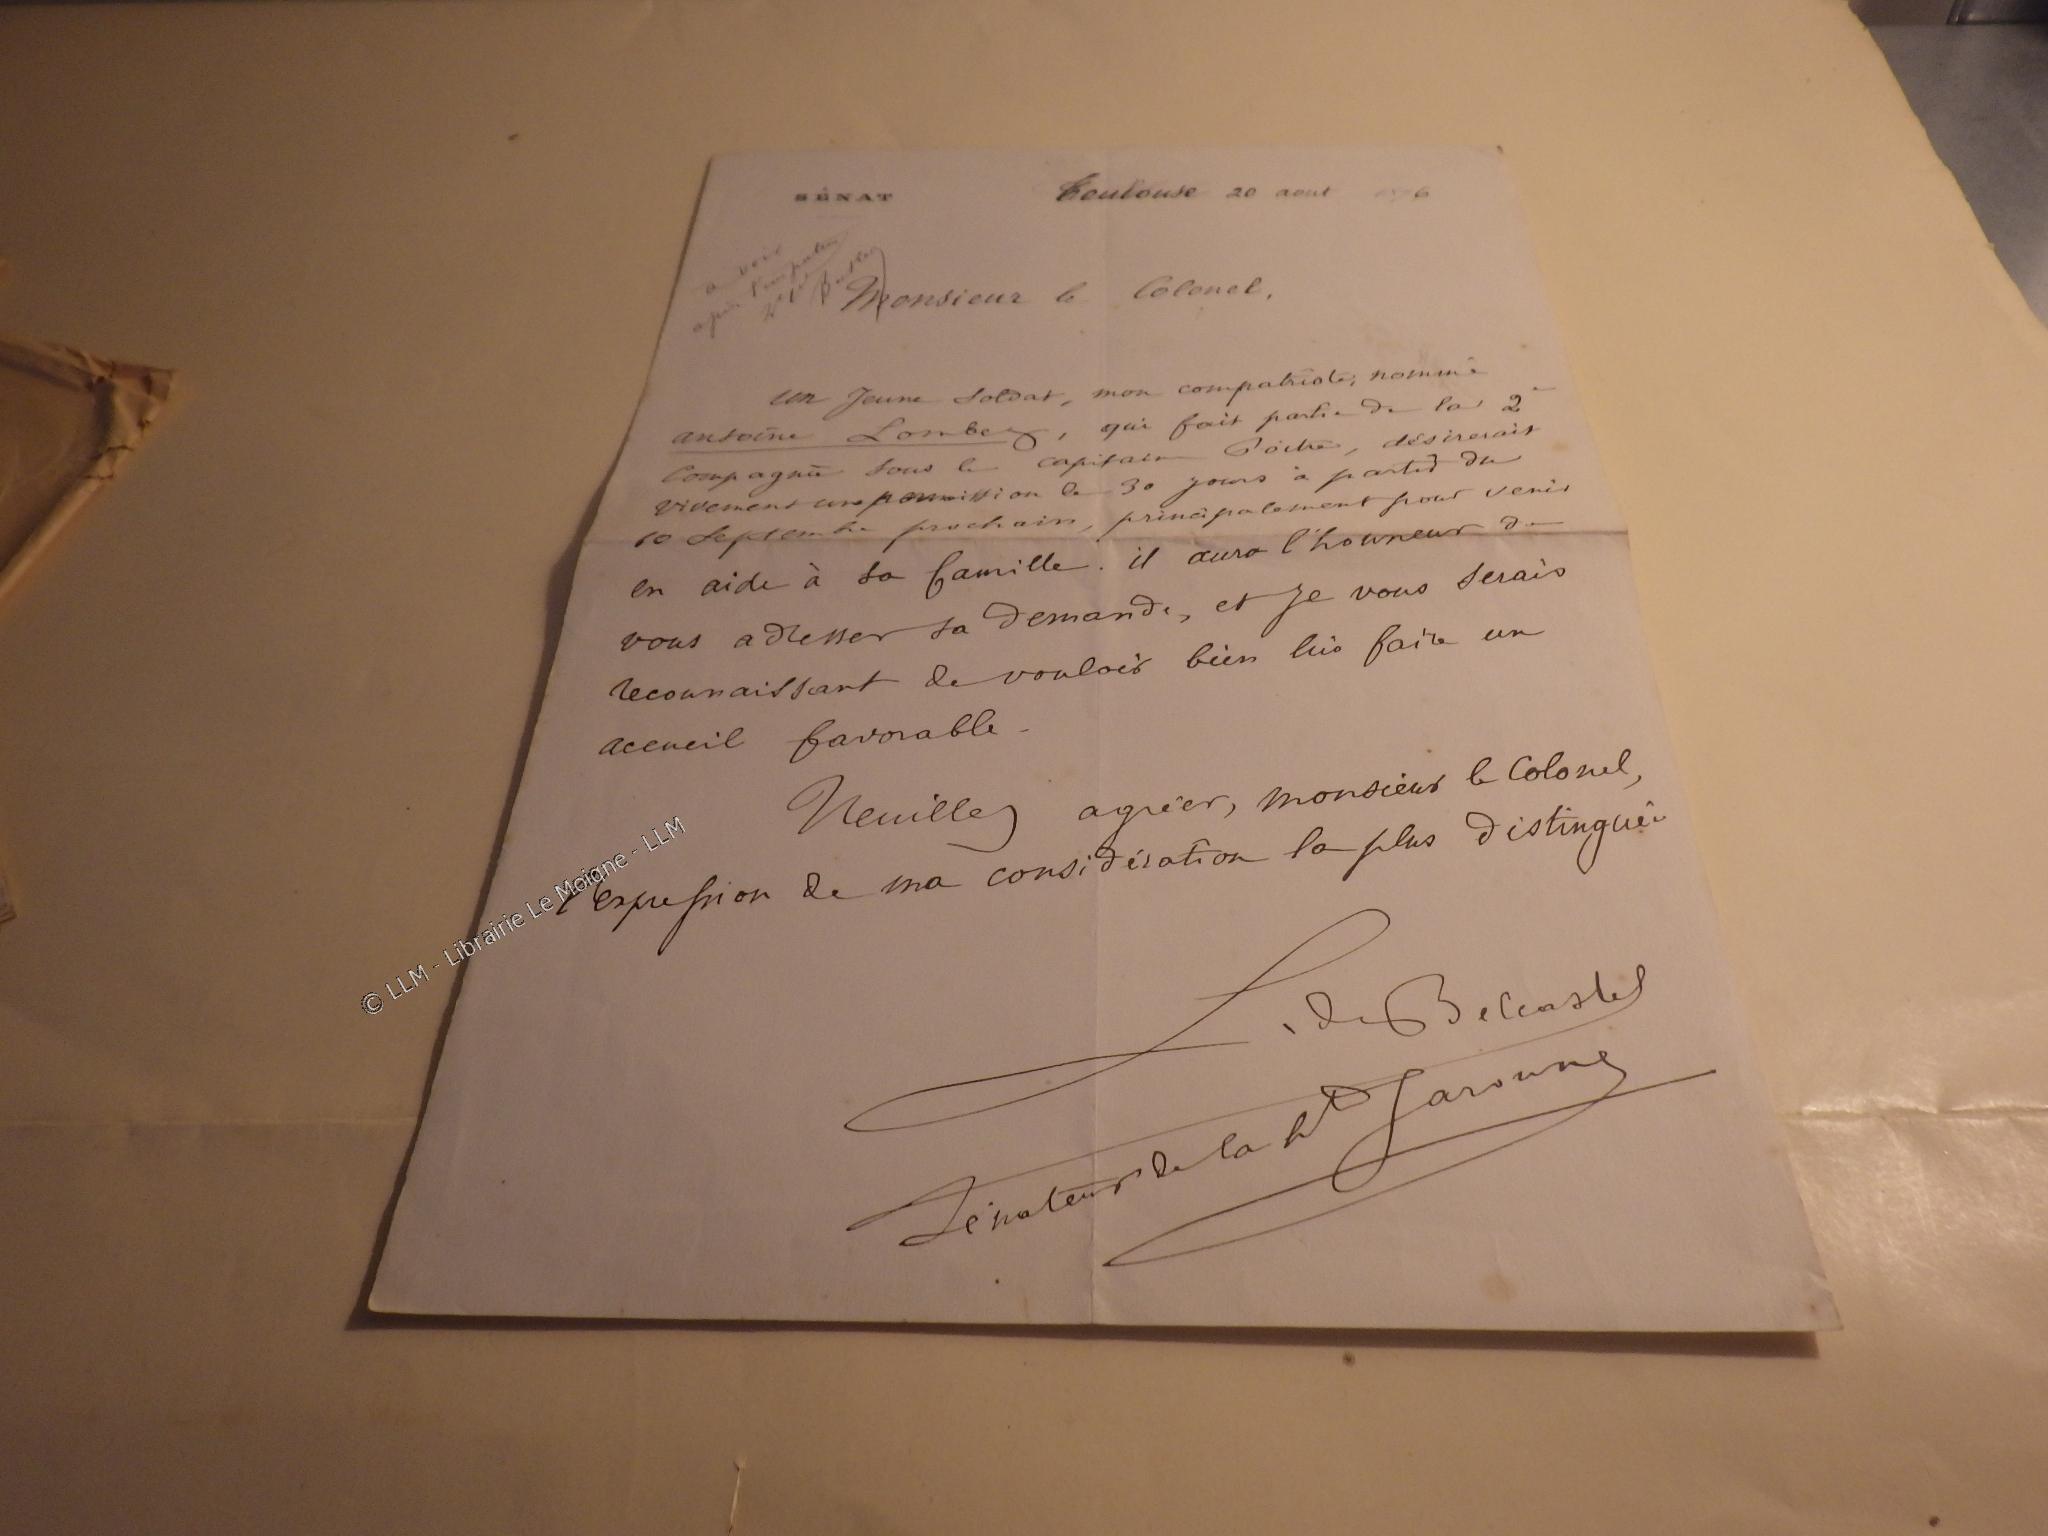 SÉNAT
Toulouse 20 aout
a voir
Monsieur le Colonel,
un Jeune Soldat, mon compatriote, nommé
antoine Lombez, qui fait partie de la 2e
Compagnie sous le capitaine désirerait
vivement une permission de 30 jours à partir du
10 Septembre prochain, principalement pour venir
en aide à sa famille. il aura l'honneur de
vous adresser sa demande, et je vous serais
reconnaissant de vouloir bien lui faire un
accueil favorable.
Veuillez agréer, monsieur le Colonel,
l'expression de ma considération la plus distinguée
L. de Belcastel
Sénateur de la hte Garonne
© LLM - Librairie Le Moigne - LLM